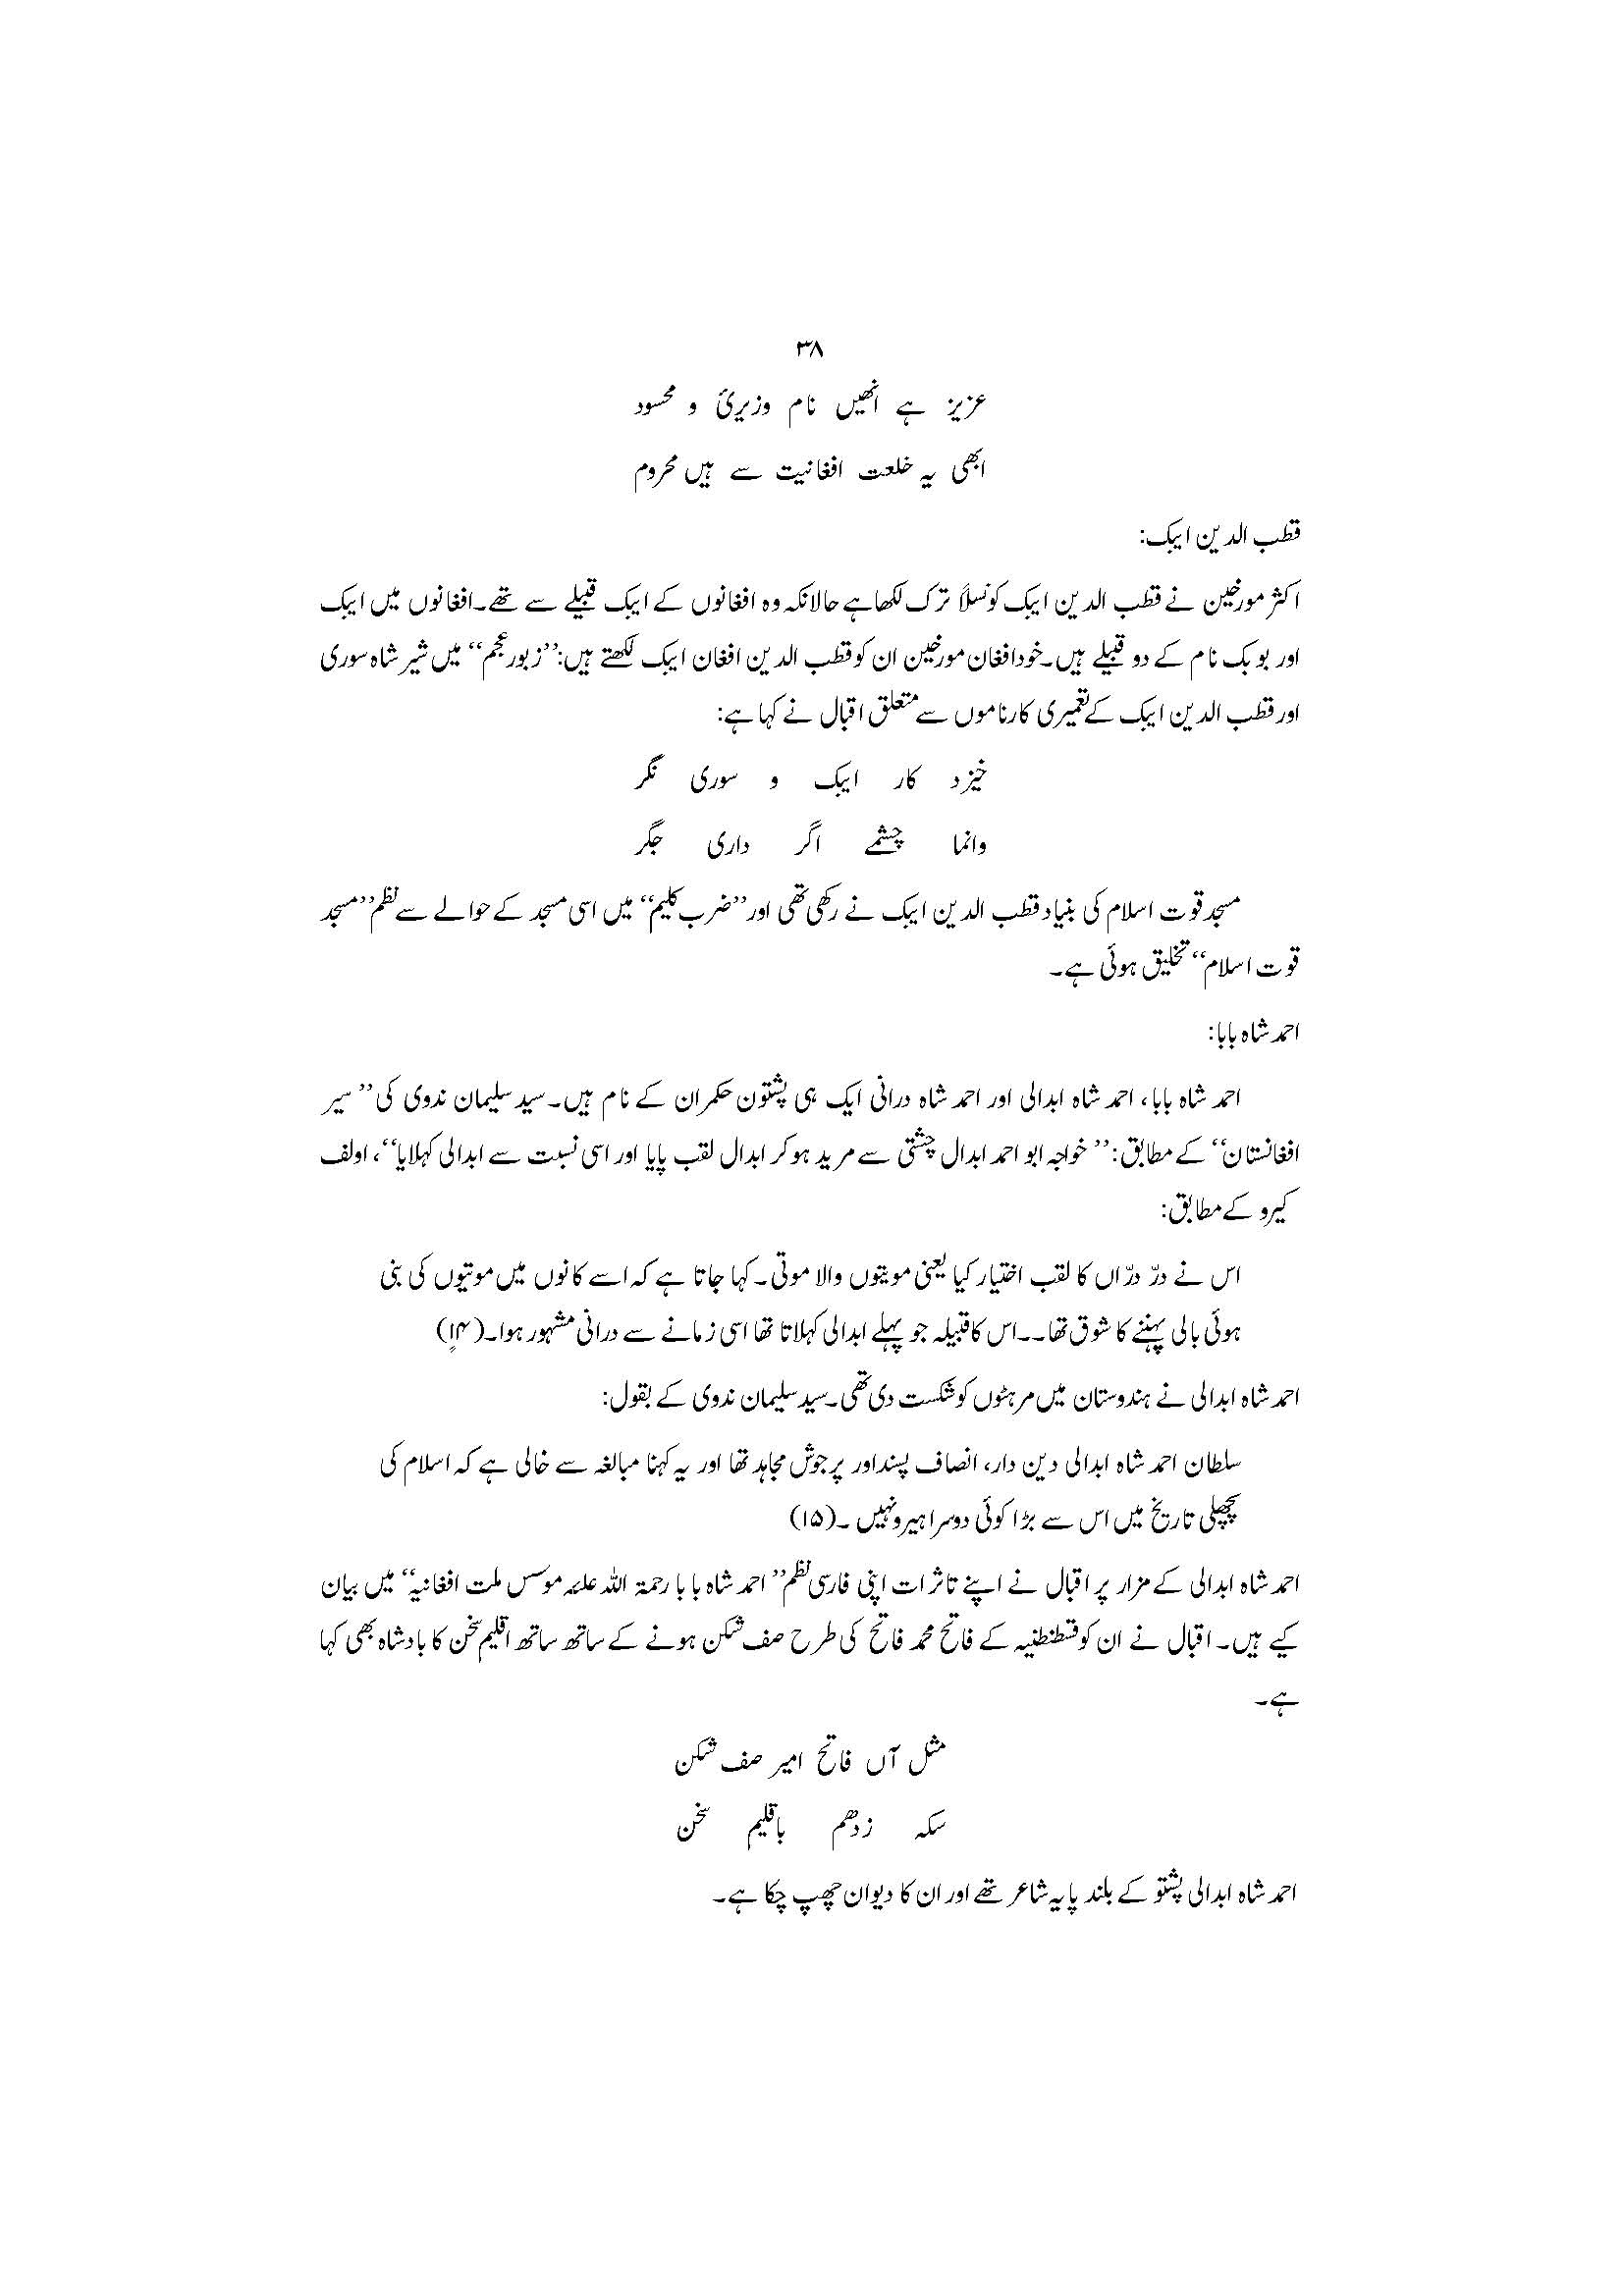 ۳۸
عزیز ہے انھیں نام وزیریٔ و محسود
ابھی یہ خلعت افغانیت سے ہیں محروم
قطب الدین ایبک:
اکثر مورخین نے قطب الدین ایبک کو نسلاً ترک لکھا ہے حالانکہ وہ افغانوں کے ایبک قبیلے سے تھے۔افغانوں میں ایبک
اور بوبک نام کے دو قبیلے ہیں۔خود افغان مورخین ان کو قطب الدین افغان ایبک لکھتے ہیں:’’زبور عجم‘‘ میں شیر شاہ سوری
اور قطب الدین ایبک کے تعمیری کارناموں سے متعلق اقبال نے کہا ہے:
خیزد کار ایبک و سوری نگر
وانما چشمے اگر داری جگر
مسجد قوت اسلام کی بنیاد قطب الدین ایبک نے رکھی تھی اور ’’ضرب کلیم‘‘ میں اسی مسجد کے حوالے سے نظم ’’مسجد
قوت اسلام‘‘ تخلیق ہوئی ہے۔
احمد شاہ بابا:
احمد شاہ بابا، احمد شاہ ابدالی اور احمد شاہ درانی ایک ہی پشتون حکمران کے نام ہیں۔سید سلیمان ندوی کی ’’سیر
افغانستان‘‘ کے مطابق: ’’خواجہ ابو احمد ابدال چشتی سے مرید ہوکر ابدال لقب پایا اور اسی نسبت سے ابدالی کہلایا‘‘، اولف
کیرو کے مطابق:
اس نے درّ درّاں کا لقب اختیار کیا یعنی مویتوں والا موتی۔کہا جاتا ہے کہ اسے کانوں میں موتیوں کی بنی
ہوئی بالی پہننے کا شوق تھا۔۔اس کا قبیلہ جو پہلے ابدالی کہلاتا تھا اسی زمانے سے درانی مشہور ہوا۔(۱۴)
احمد شاہ ابدالی نے ہندوستان میں مرہٹوں کو شکست دی تھی۔سید سلیمان ندوی کے بقول:
سلطان احمد شاہ ابدالی دین دار، انصاف پسند اور پرجوش مجاہد تھا اور یہ کہنا مبالغہ سے خالی ہے کہ اسلام کی
پچھلی تاریخ میں اس سے بڑا کوئی دوسرا ہیرو نہیں ۔(۱۵)
احمد شاہ ابدالی کے مزار پر اقبال نے اپنے تاثرات اپنی فارسی نظم ’’احمد شاہ بابا رحمۃ اللہ علیہ موسس ملت افغانیہ‘‘ میں بیان
کیے ہیں۔ اقبال نے ان کو قسطنطنیہ کے فاتح محمد فاتح کی طرح صف شکن ہونے کے ساتھ ساتھ اقلیم سخن کا بادشاہ بھی کہا
ہے۔
مثل آں فاتح امیر صف شکن
سکہ زدھم باقلیم سخن
احمد شاہ ابدالی پشتو کے بلند پایہ شاعر تھے اور ان کا دیوان چھپ چکا ہے۔